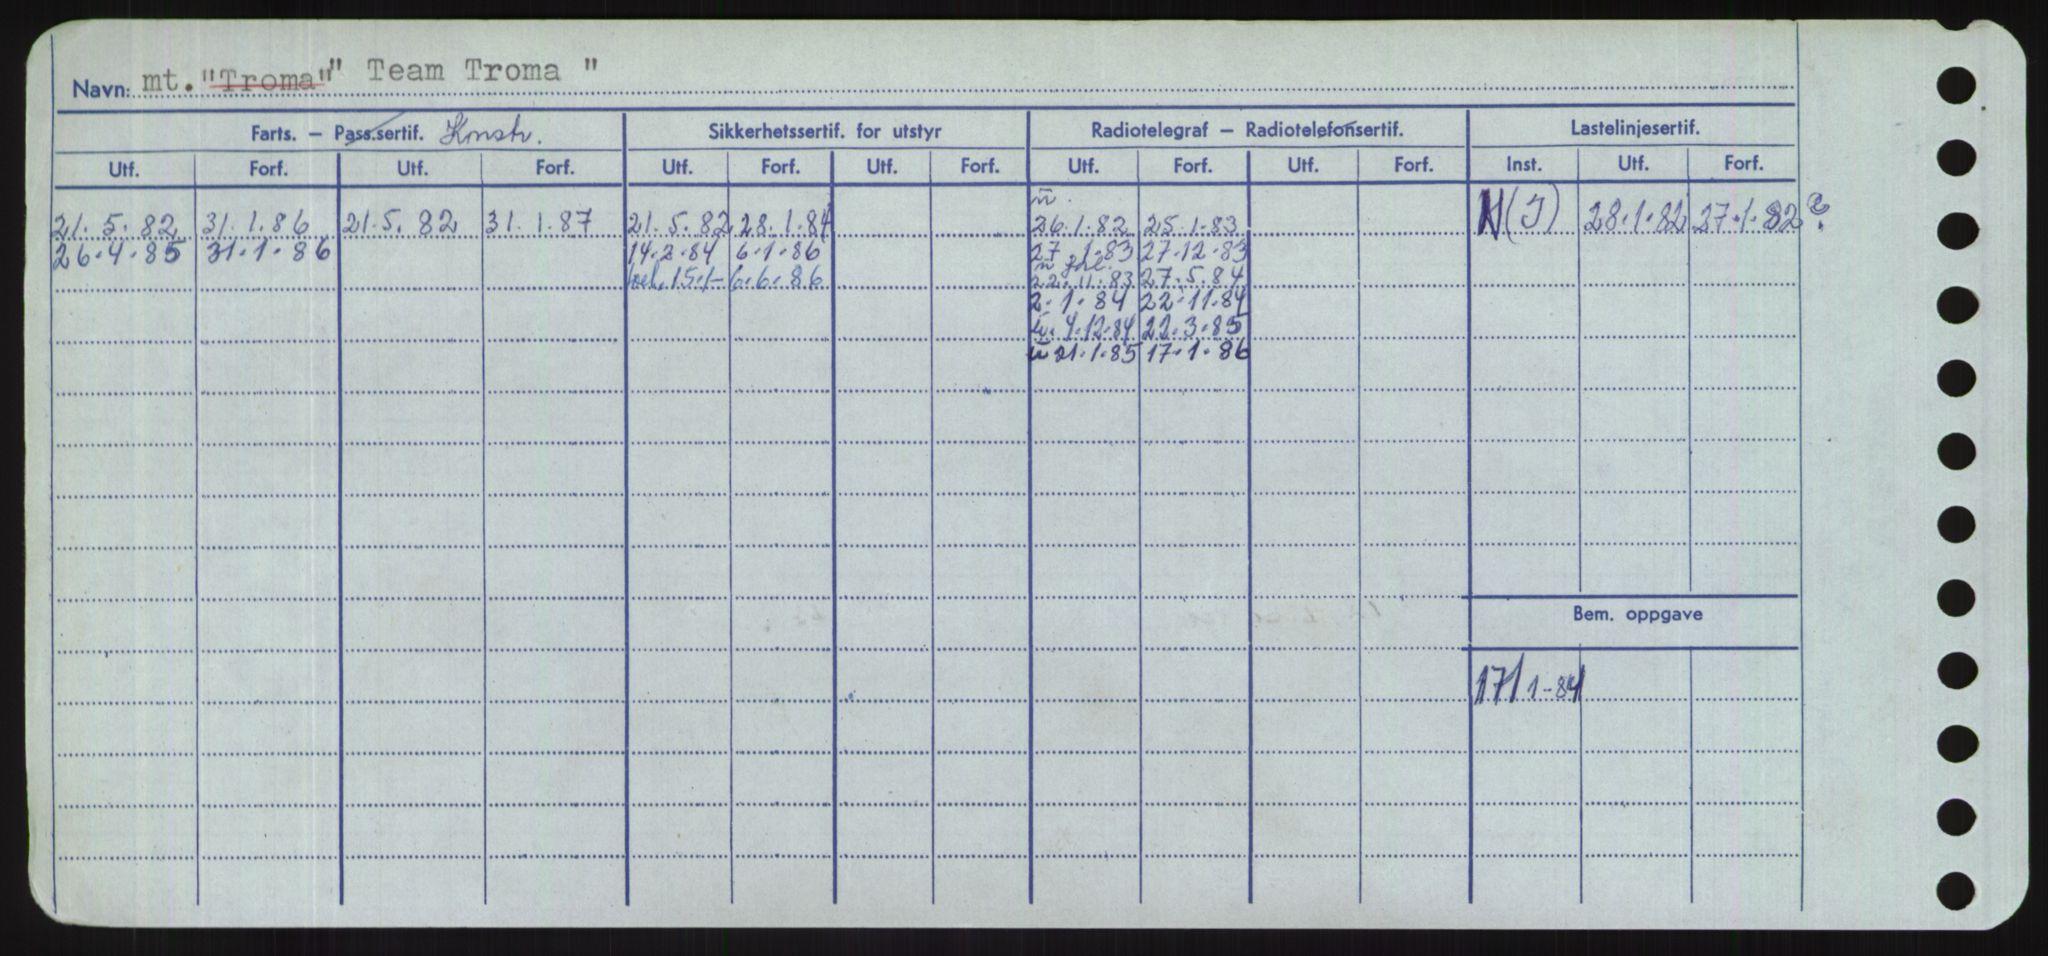 Navn: mt. "Troma" " Team Troma "
Farts. – Pass.sertif. Konstr. Sikkerhetssertif. for utstyr Radiotelegraf – Radiotelefonsertif. Lastelinjesertif.
Utf. Forf. Utf. Forf. Utf. Forf. Utf. Forf. Utf. Forf. Utf. Forf. Inst. Utf. Forf.
21.5.82 31.1.86 21.5.82 31.1.87 21.5.82 28.1.84 26.1.82 25.1.83 N(I) 28.1.82 27.1.82 ?
26.4.85 31.1.86 14.2.84 6.1.86 27.1.83 27.12.83
6.6.86 22.11.83 27.5.84
2.1.84 22.11.84
4.12.84 22.3.85
21.1.85 17.1.86
Bem. oppgave
17/1-84